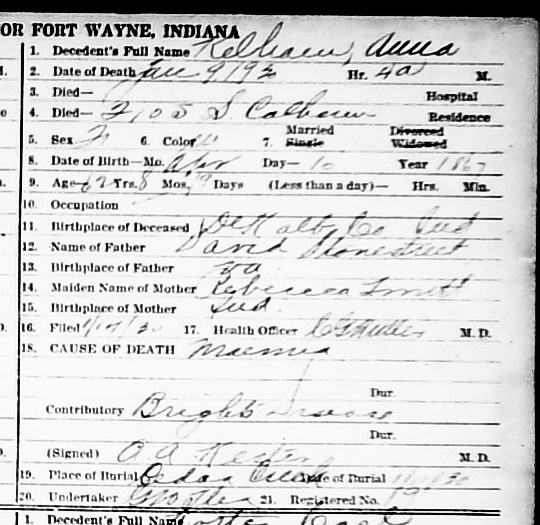 OR FORT WAYNE, INDIANA
1. Decedent's Full Name Kelham, Anna
2. Date of Death Jan 9 193 Hr. 4a M.
3. Died— Hospital
4. Died— 2105 S. Calhoun Residence
5. Sex F 6. Color W 7. Married Single Divorced Widowed
8. Date of Birth—Mo. Apr Day— 10 Year 1867
9. Age— 62 Yrs. 8 Mos. Days (Less than a day)— Hrs. Min.
10. Occupation
11. Birthplace of Deceased DeKalb Co Ind
12. Name of Father David Stonestreet
13. Birthplace of Father
14. Maiden Name of Mother Rebecca Smith
15. Birthplace of Mother Ind.
16. Filed 17. Health Officer M. D.
18. CAUSE OF DEATH Uraemia
Dur.
Contributory Brights
Dur.
(Signed) A. A. M. D.
19. Place of Burial Cedar Creek Date of Burial
20. Undertaker 21. Registered No. 19
1. Decedent's Full Name